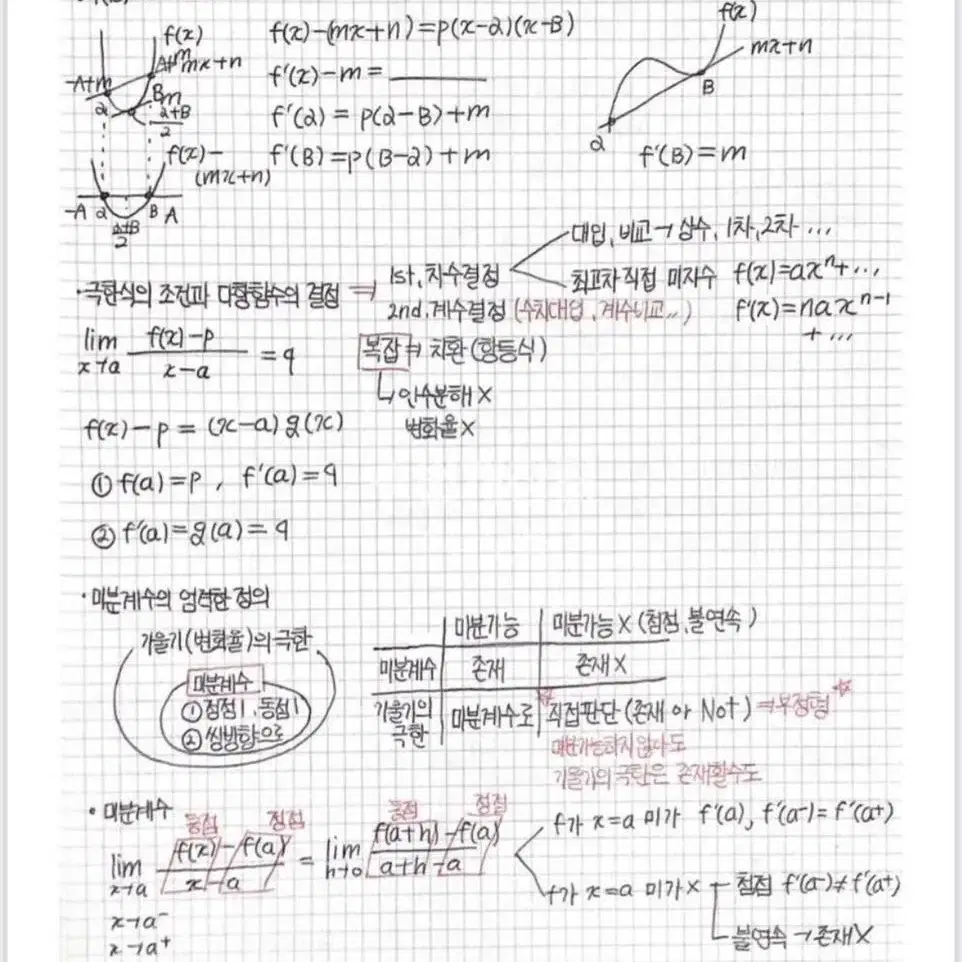 f(x)
A+m
mx+n
-A+m
m
α
B
α+B/2
f(x)-(mx+n)
-A α B A
α+B/2
f(x)-(mx+n)=p(x-α)(x-B)
f'(x)-m=
f'(α)=p(α-B)+m
f'(B)=p(B-α)+m
f(x)
mx+n
B
α
f'(B)=m
·극한식의 조건과 다항함수의 결정 ⇒ 1st. 차수결정
대입, 비교→상수, 1차, 2차…
최고차 직접 미지수 f(x)=axⁿ+…
f'(x)=naxⁿ⁻¹+…
2nd. 계수결정 (수치대입, 계수비교..)
lim x→a f(x)-p / x-a = q
복잡 ⇒ 치환(항등식)
↳인수분해 X
변화율 X
f(x)-p=(x-a)g(x)
① f(a)=p, f'(a)=q
② f'(a)=g(a)=q
·미분계수의 엄격한 정의
기울기(변화율)의 극한
미분계수
① 정점1, 동점1
② 쌍방향으로
미분가능 미분가능X (첨점, 불연속)
미분계수 존재 존재X
기울기의 극한 미분계수로 직접판단(존재 or Not)⇒부정형
미분가능하지 않다도
기울기의 극한은 존재할수도
·미분계수
동점 정점 동점 정점
lim x→a f(x)-f(a) / x-a = lim h→0 f(a+h)-f(a) / a+h-a
x→a⁻
x→a⁺
f가 x=a 미가 f'(a), f'(a⁻)=f'(a⁺)
f가 x=a 미가X 첨점 f'(a⁻)≠f'(a⁺)
불연속→존재X